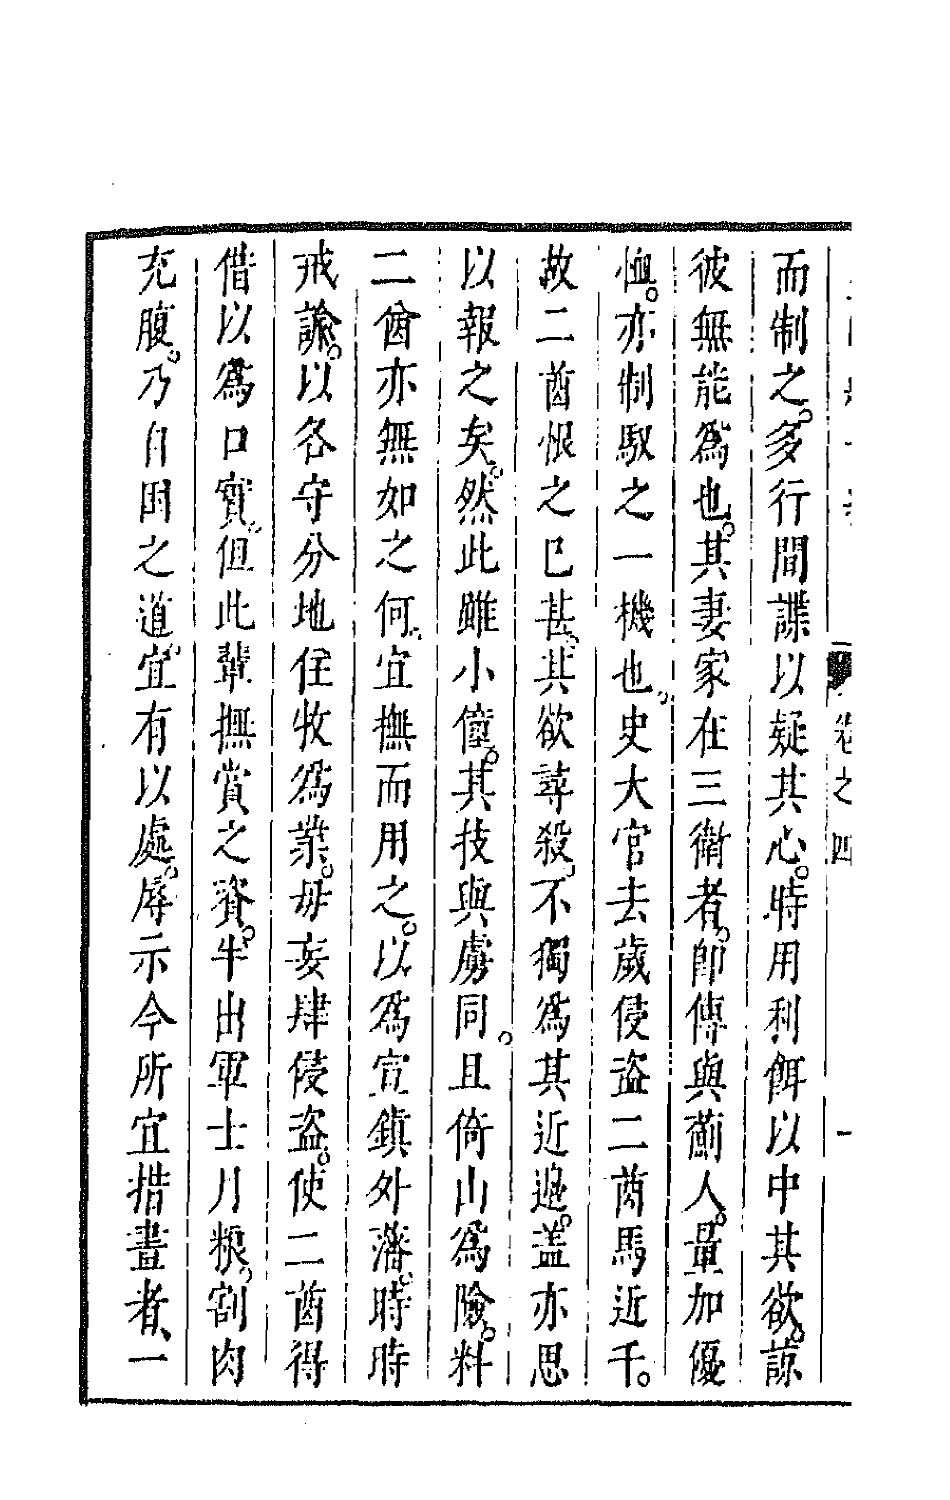 卷之四
一
而制之。多行間諜以疑其心。時用利餌以中其欲。諒
彼無能爲也。其妻家在三衛者。即傳與薊人。量加優
恤。亦制馭之一機也。史大官去歲侵盗二酋馬近千。
故二酋恨之已甚。其欲尋殺。不獨爲其近邊。盖亦思
以報之矣。然此雖小僮。其技與虜同。且倚山爲險。料
二酋亦無如之何。宜撫而用之。以爲宣鎮外藩。時時
戒諭。以各守分地住牧爲業。毋妄肆侵盗。使二酋得
借以爲口實。但此輩撫賞之資。半出軍士月粮。割肉
充腹。乃自困之道。宜有以處。辱示今所宜措畫者、一